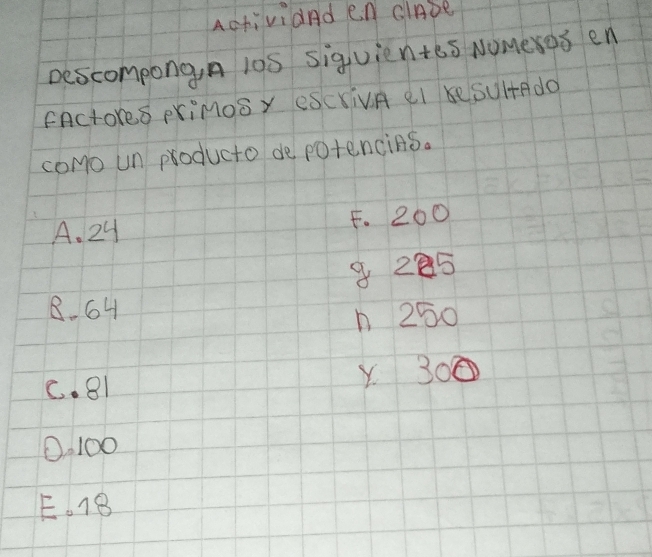 Actividad en clase
Descompong,A los siguientes Nomeros en
Factores primos y escriva el resultado
como un producto de potencias.
A. 24
F. 200
g 225
B. 64
h 250
C. 81
Y. 300
D. 100
E. 18